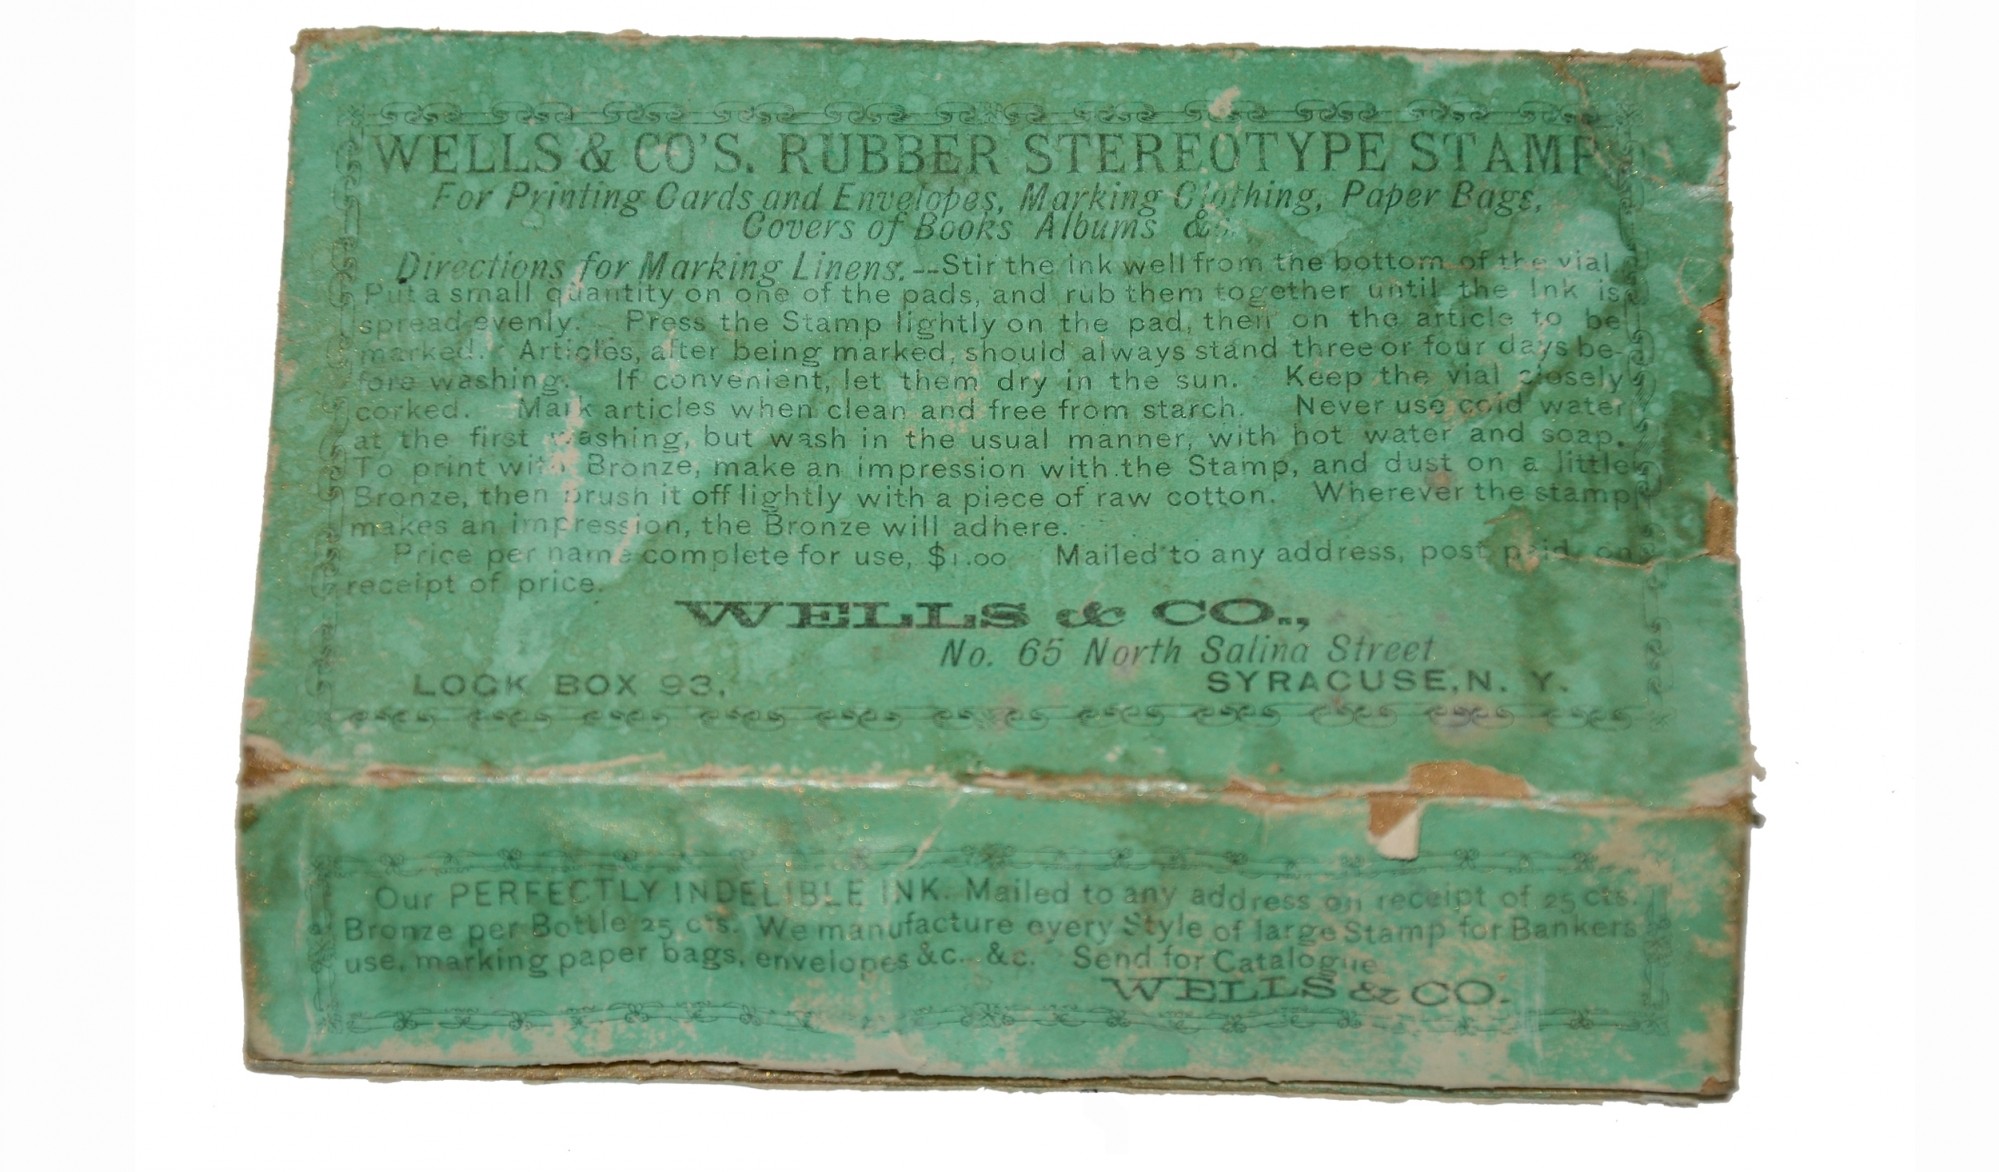 WELLS & CO'S. RUBBER STEREOTYPE STAMP
For Printing Cards and Envelopes, Marking Clothing, Paper Bags,
Covers of Books Albums &c.
Directions for Marking Linens.--Stir the ink well from the bottom of the vial
Put a small quantity on one of the pads, and rub them together until the Ink is
spread evenly. Press the Stamp lightly on the pad, then on the article to be
marked. Articles, after being marked, should always stand three or four days be-
fore washing. If convenient, let them dry in the sun. Keep the vial closely
corked. Mark articles when clean and free from starch. Never use cold water
at the first washing, but wash in the usual manner, with hot water and soap.
To print with Bronze, make an impression with the Stamp, and dust on a little
Bronze, then brush it off lightly with a piece of raw cotton. Wherever the stamp
makes an impression, the Bronze will adhere.
Price per name complete for use, $1.00 Mailed to any address, post paid, on
receipt of price.
WELLS & CO.,
No. 65 North Salina Street
LOCK BOX 93, SYRACUSE, N. Y.
Our PERFECTLY INDELIBLE INK. Mailed to any address on receipt of 25 cts.
Bronze per Bottle 25 cts. We manufacture every Style of large Stamp for Bankers
use, marking paper bags, envelopes &c. &c. Send for Catalogue
WELLS & CO.